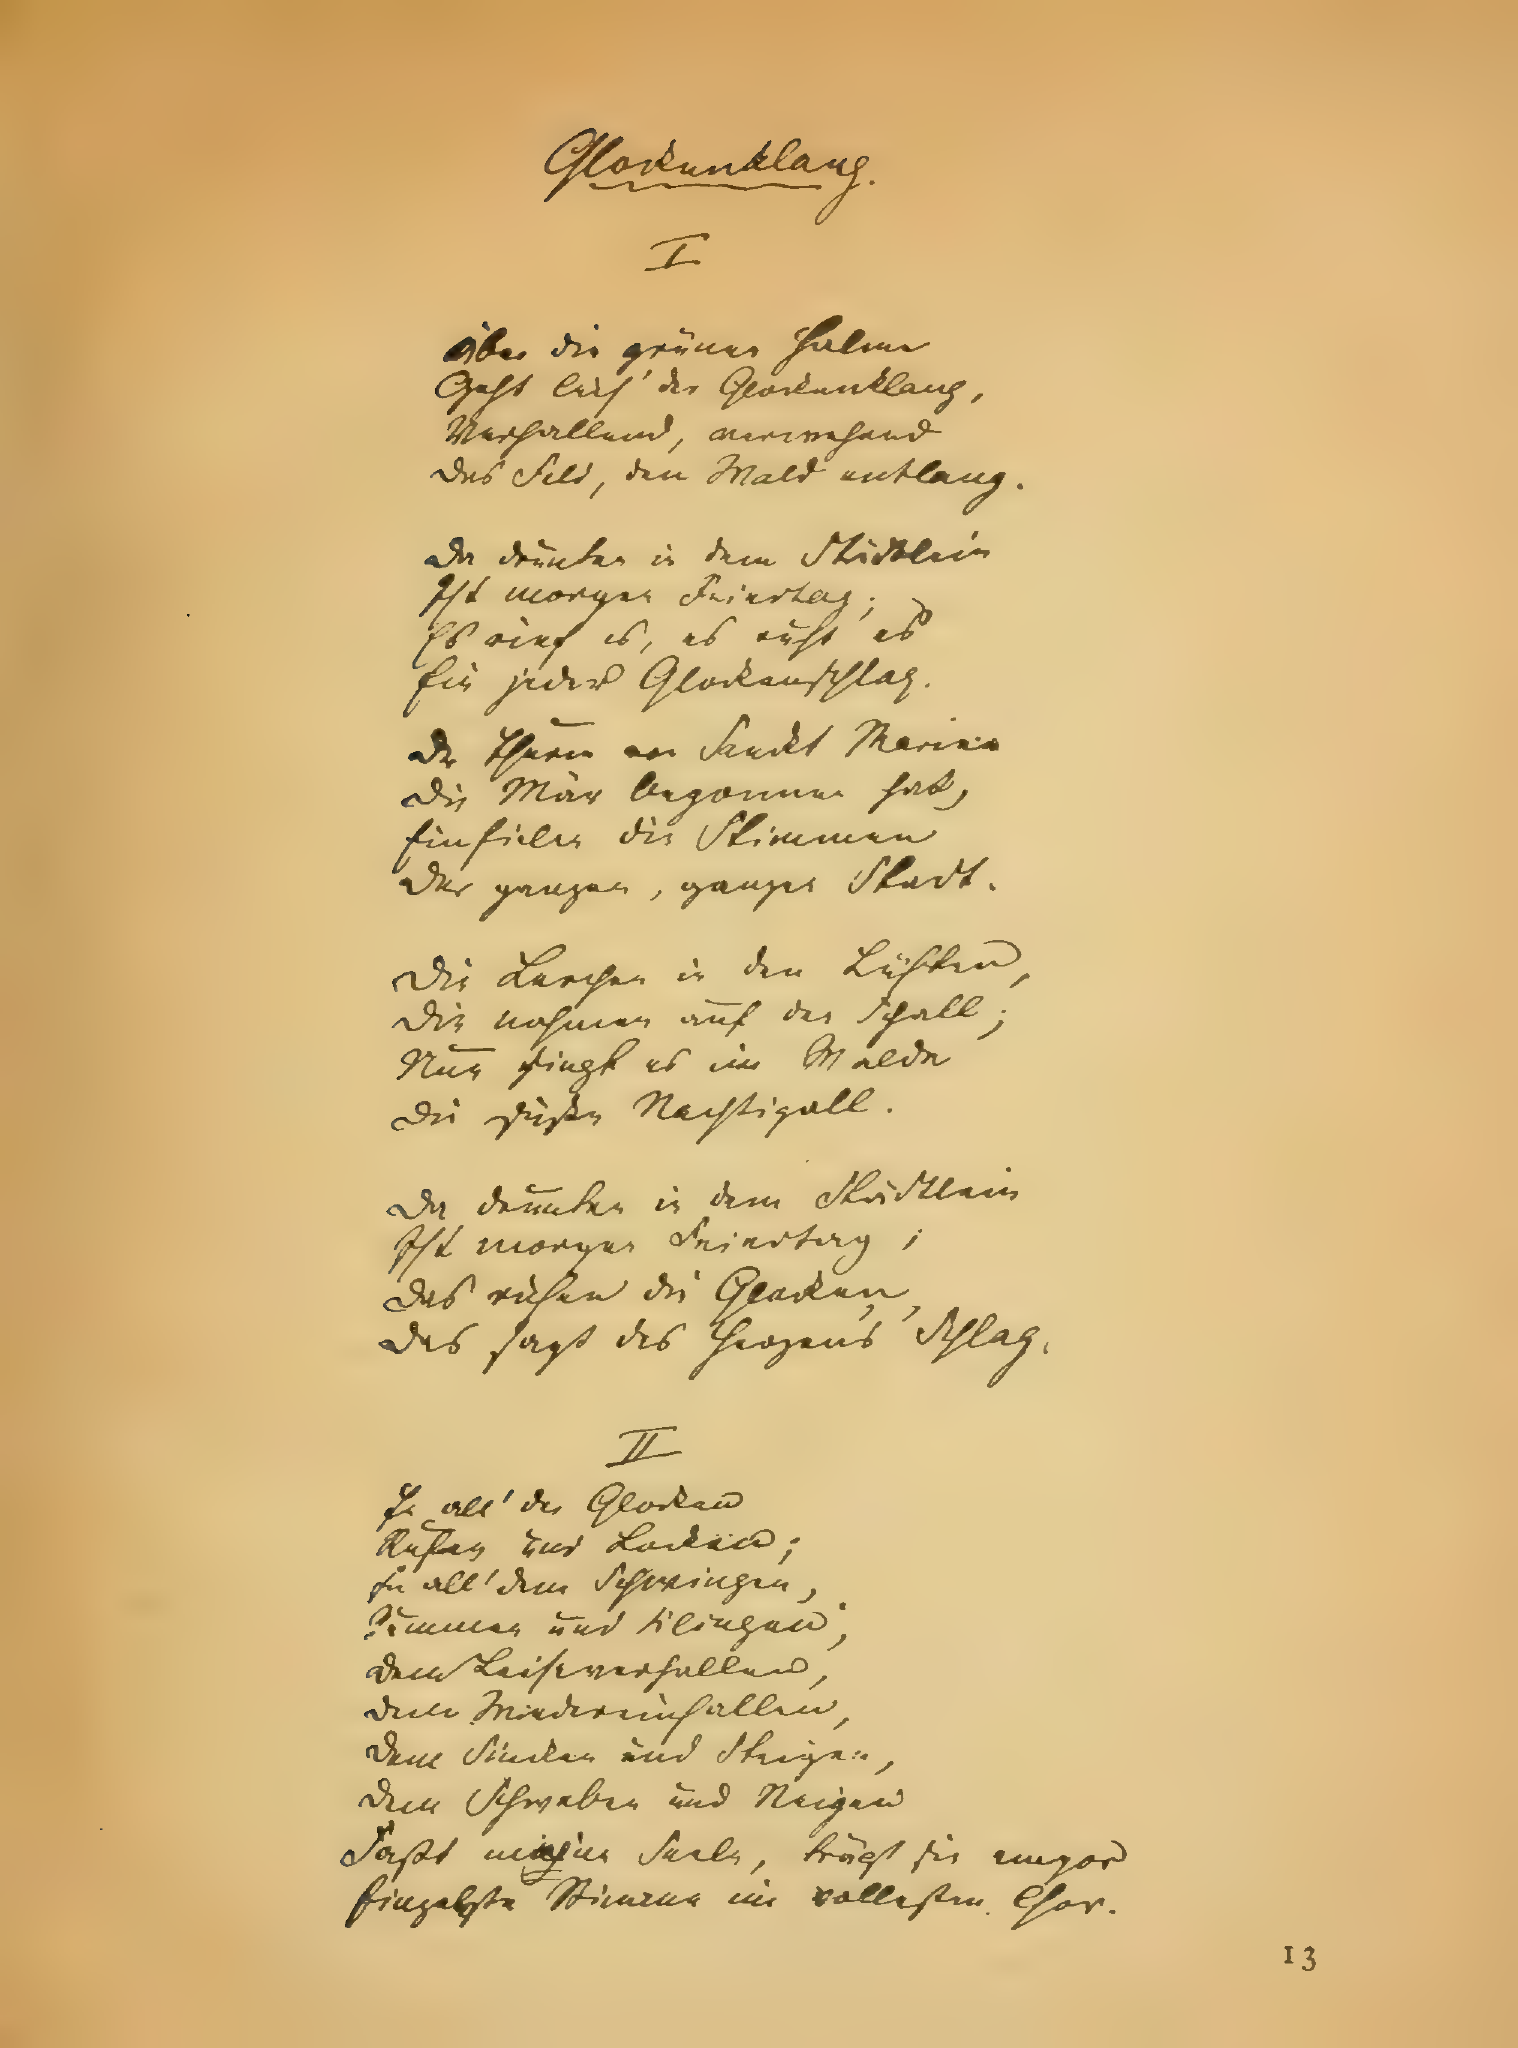 Glockenklang.
I
Über die grünen Halme
Geht leis' der Glockenklang,
Verhallend, verwehend
Das Feld, den Wald entlang.
Da drunten in dem Städtlein
Ist morgen Feiertag;
Es rief es, es ruft es
Ein jeder Glockenschlag.
Der Thurm von Sankt Marien
Die Mär begonnen hat,
Einfielen die Stimmen
Der ganzen, ganzen Stadt.
Die Lerchen in den Lüften,
Die nahmen auf den Schall;
Nun singt es im Walde
Die süße Nachtigall.
Da drunten in dem Städtlein
Ist morgen Feiertag;
Das rufen die Glocken,
Das sagt des Herzens Schlag.
II
In all' der Glocken
Rufen und Locken;
In all' dem Schwingen,
Summen und Klingen;
Dem Leiseverhallen,
Dem Wiedereinfallen,
Dem Sinken und Steigen,
Dem Schweben und Neigen
Faßt meine Seele, trägt sie empor
Einzelste Stimme im vollesten Chor.
13